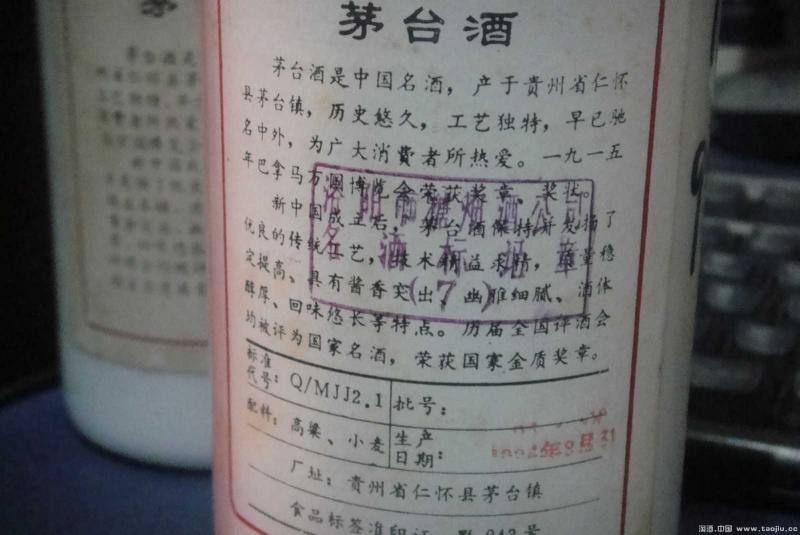 茅台酒
茅台酒是中国名酒，产于贵州省仁怀
县茅台镇，历史悠久，工艺独特，早已驰
名中外，为广大消费者所热爱。一九一五
年巴拿马万国博览会荣获奖章、奖状。
新中国成立后，茅台酒保持并发扬了
优良的传统工艺，技术精益求精，质量稳
定提高、具有酱香突出、幽雅细腻、酒体
醇厚、回味悠长等特点。历届全国评酒会
均被评为国家名酒，荣获国家金质奖章。
标准代号：Q/MJJ2.1 批号：
配料：高粱、小麦 生产日期：
厂址：贵州省仁怀县茅台镇
食品标签准印证
(7)
淘酒.中国 www.taojiu.cc